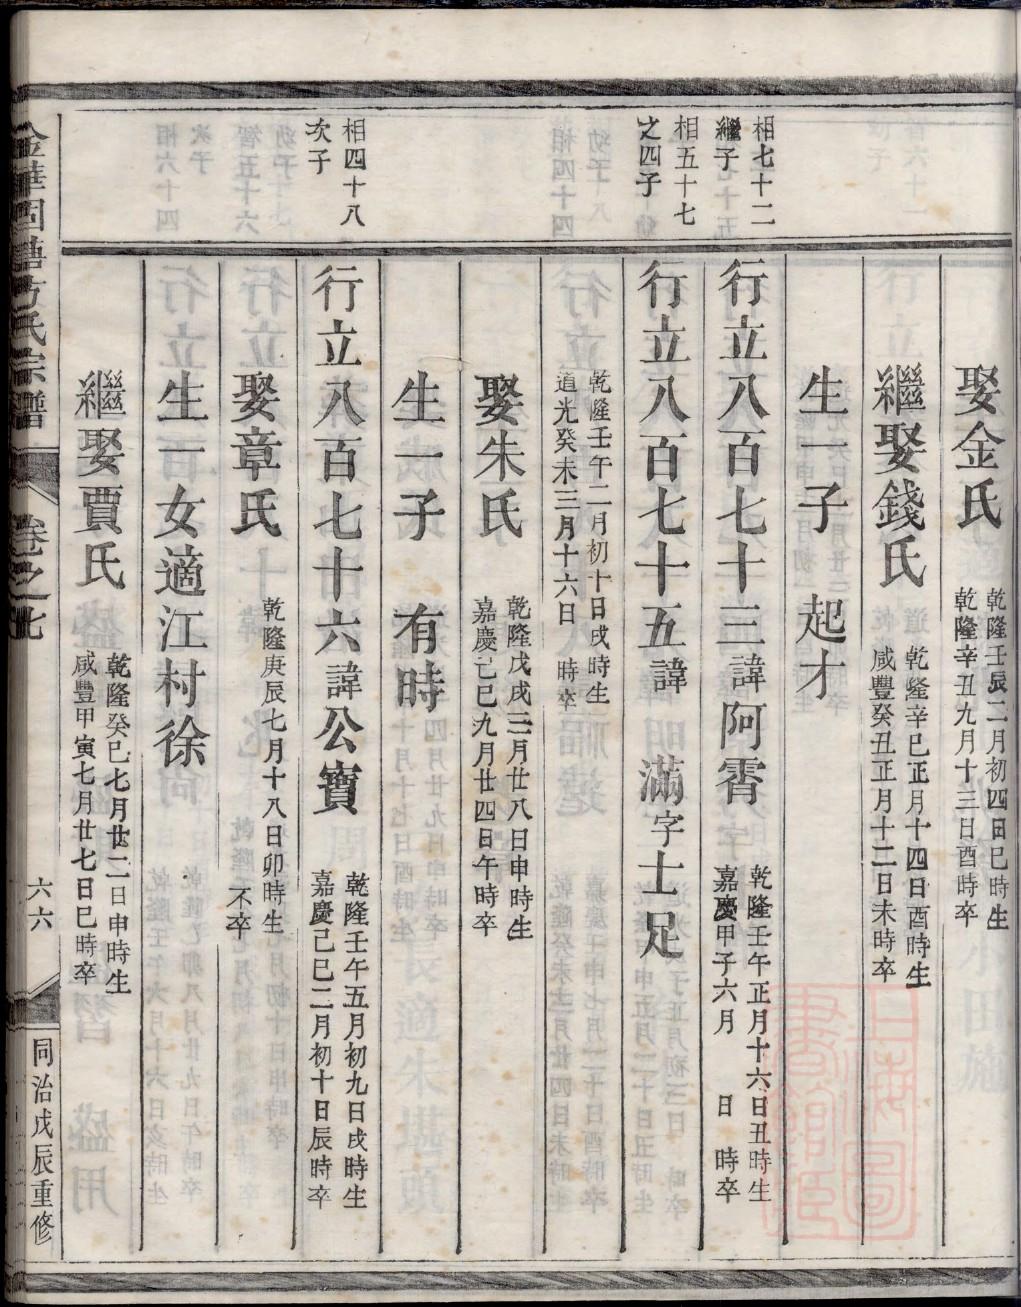 娶金氏
乾隆壬辰二月初四日巳時生
乾隆辛丑九月十三日酉時卒
繼娶錢氏
乾隆辛巳正月十四日酉時生
咸豐癸丑正月十二日未時卒
生一子 起才
相七十二
繼子
行立八百七十三諱阿霄
乾隆壬午正月十六日丑時生
嘉慶甲子六月 日 時卒
相五十七
之四子
行立八百七十五諱滿字士足
乾隆壬午二月初十日戌時生
道光癸未三月十六日 時卒
娶朱氏
乾隆戊戌三月廿八日申時生
嘉慶己巳九月廿四日午時卒
生一子 有時
相四十八
次子
行立八百七十六諱公寶
乾隆壬午五月初九日戌時生
嘉慶己巳二月初十日辰時卒
娶章氏
乾隆庚辰七月十八日卯時生
不卒
生一女適江村徐
繼娶賈氏
乾隆癸巳七月廿二日申時生
咸豐甲寅七月廿七日巳時卒
卷之七
六六
同治戊辰重修